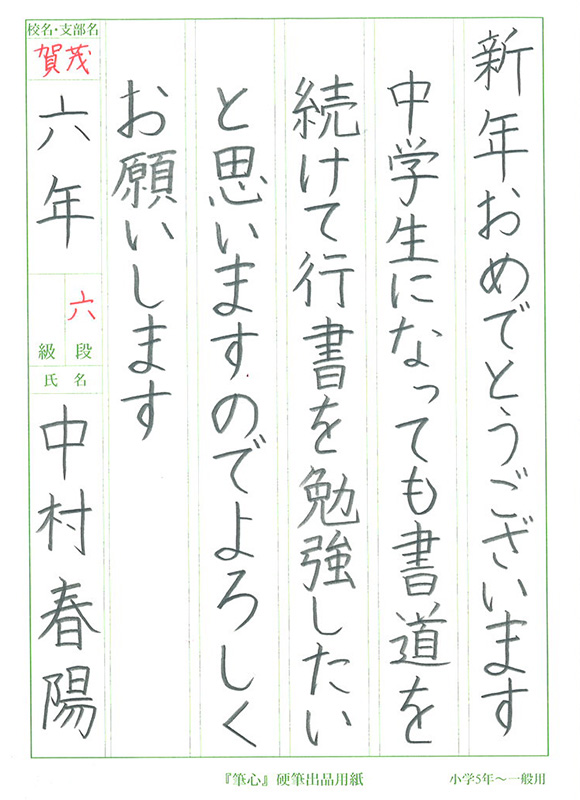 新年おめでとうございます
中学生になっても書道を
続けて行書を勉強したい
と思いますのでよろしく
お願いします
校名・支部名
賀茂
六年
六
級 段
氏 名
中村春陽
『筆心』硬筆出品用紙
小学5年～一般用